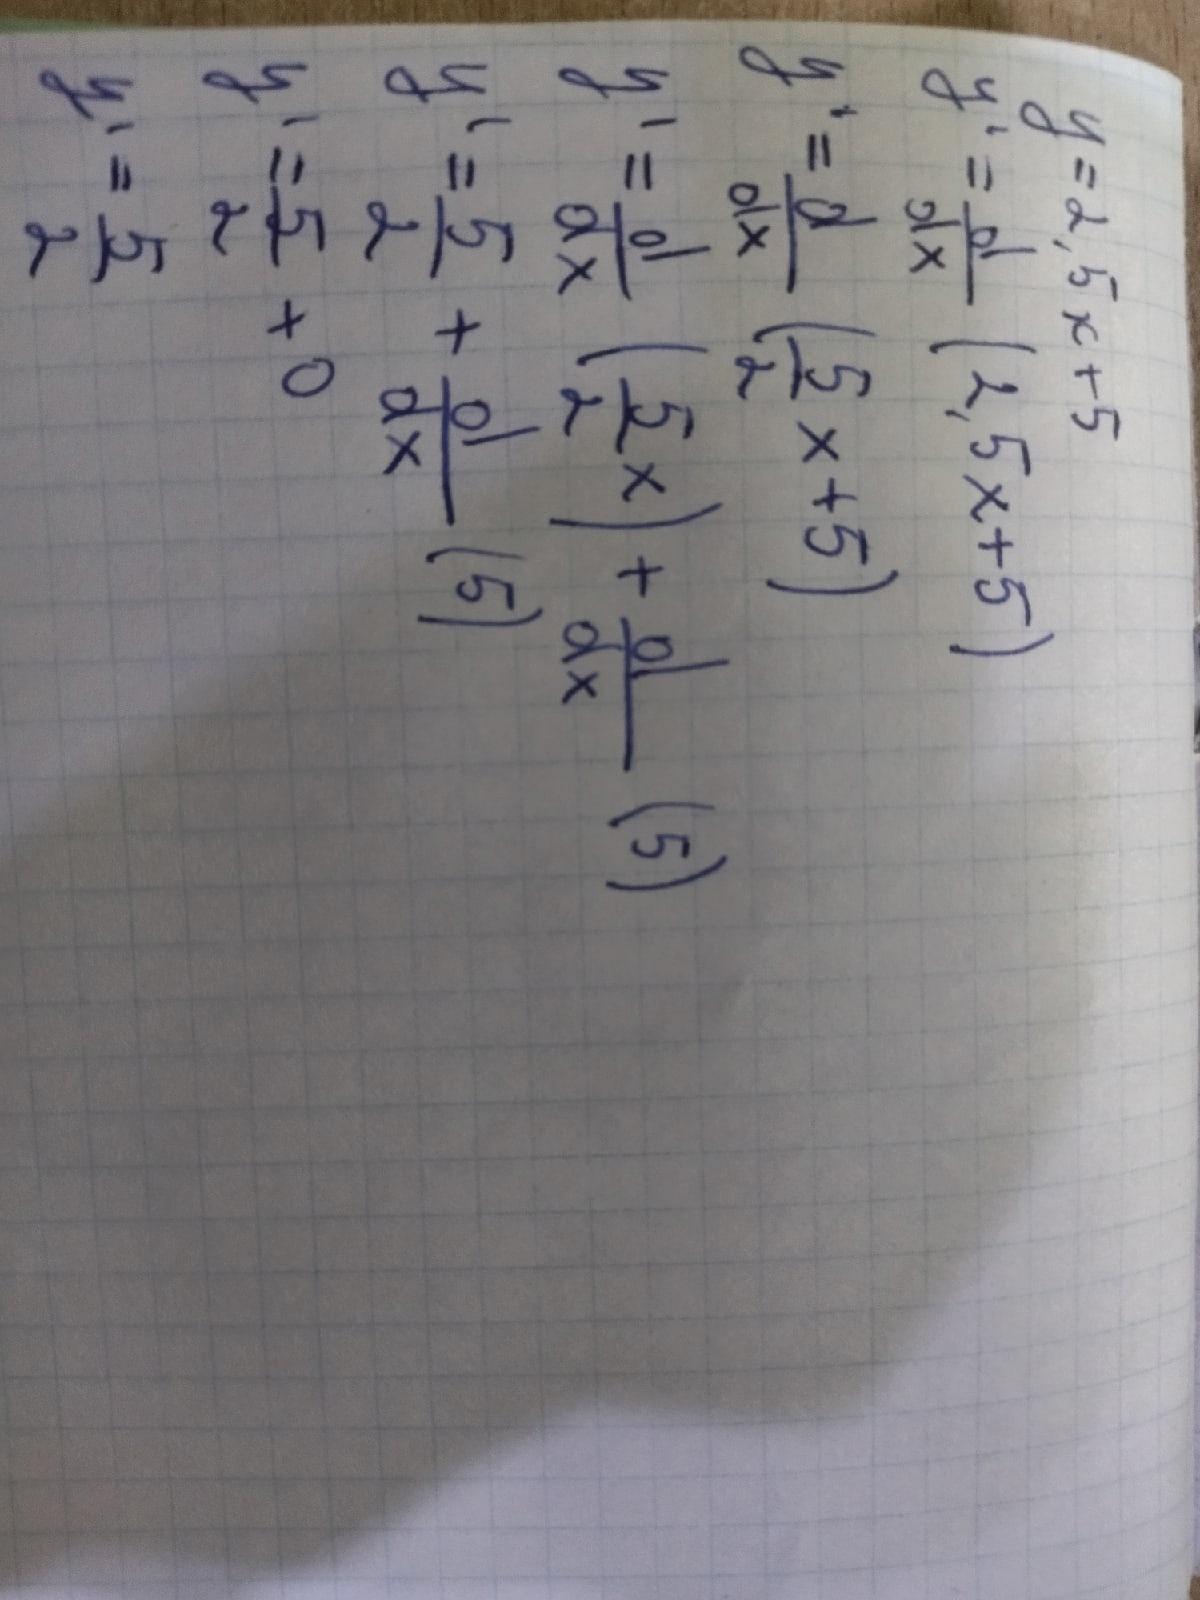 y = 2,5x+5
y' = d/dx (2,5x+5)
y' = d/dx (5/2 x+5)
y' = d/dx (5/2 x) + d/dx (5)
y' = 5/2 + d/dx (5)
y' = 5/2 + 0
y' = 5/2